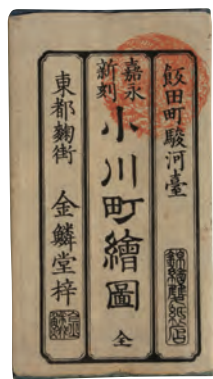 飯田町駿河臺
嘉永
新刻
小川町繪圖
全
東都麹街
金鱗堂梓